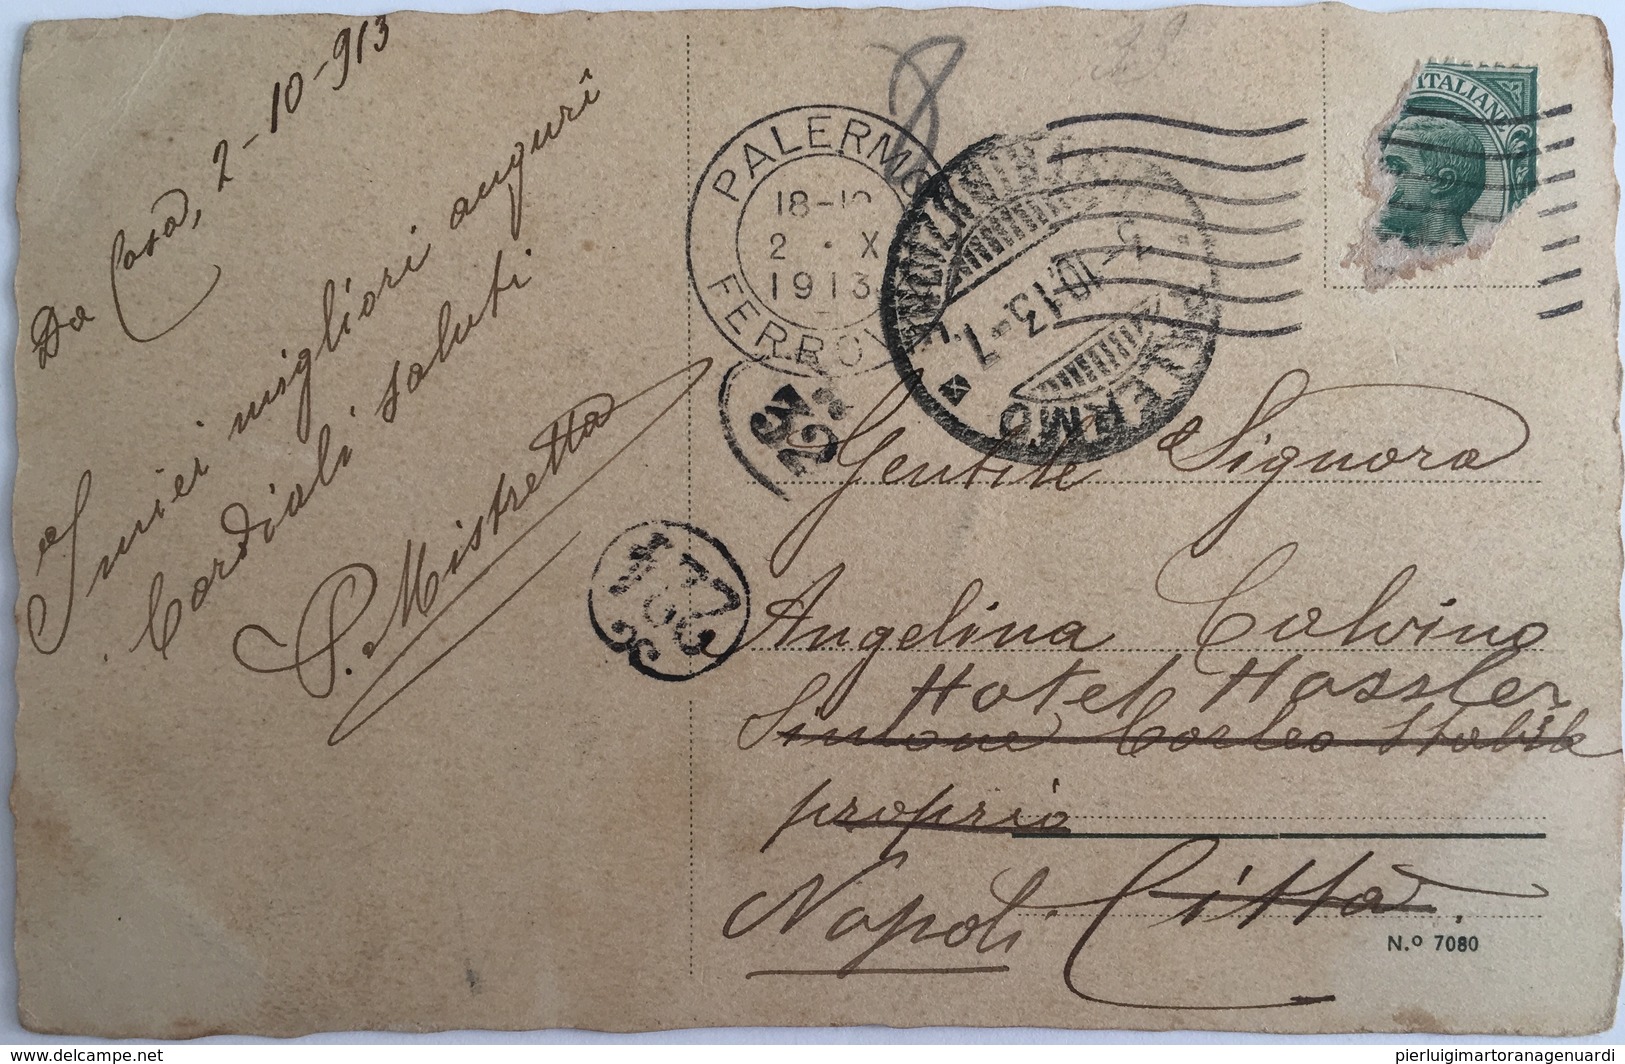 Da Casa, 2-10-913
I miei migliori augurî
Cordiali saluti
P. Mistretta
8
PALERMO
18-19
2 · X
1913
FERROVIA
PALERMO
10.13-7
32
ITALIANE
Gentile Signora
Angelina Calvino
Hotel Hassler
Simone Corleo Stabile
proprio
Napoli Città.
N.º 7080
delcampe.net
pierluigimartoranagenuardi